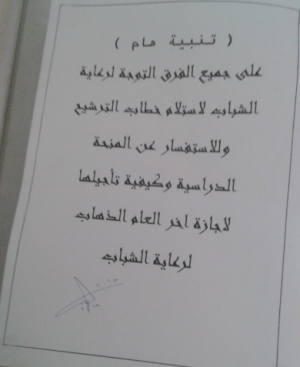 ( تنبية هام )
على جميع الفرق التوجة لرعاية
الشباب لاستلام خطاب الترشيح
وللاستفسار عن المنحة
الدراسية وكيفية تأجيلها
لاجازة اخر العام الذهاب
لرعاية الشباب